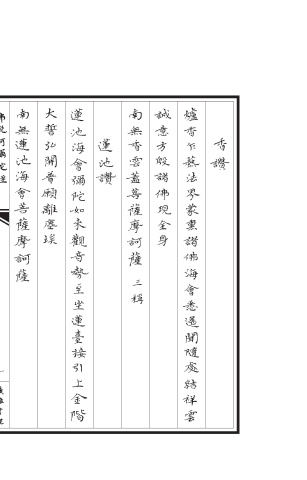 香讚
爐香乍爇法界蒙熏諸佛海會悉遙聞隨處結祥雲
誠意方殷諸佛現全身
南無香雲蓋菩薩摩訶薩 三稱
蓮池讚
蓮池海會彌陀如來觀音勢至坐蓮臺接引上金階
大誓弘開普願離塵埃
南無蓮池海會菩薩摩訶薩